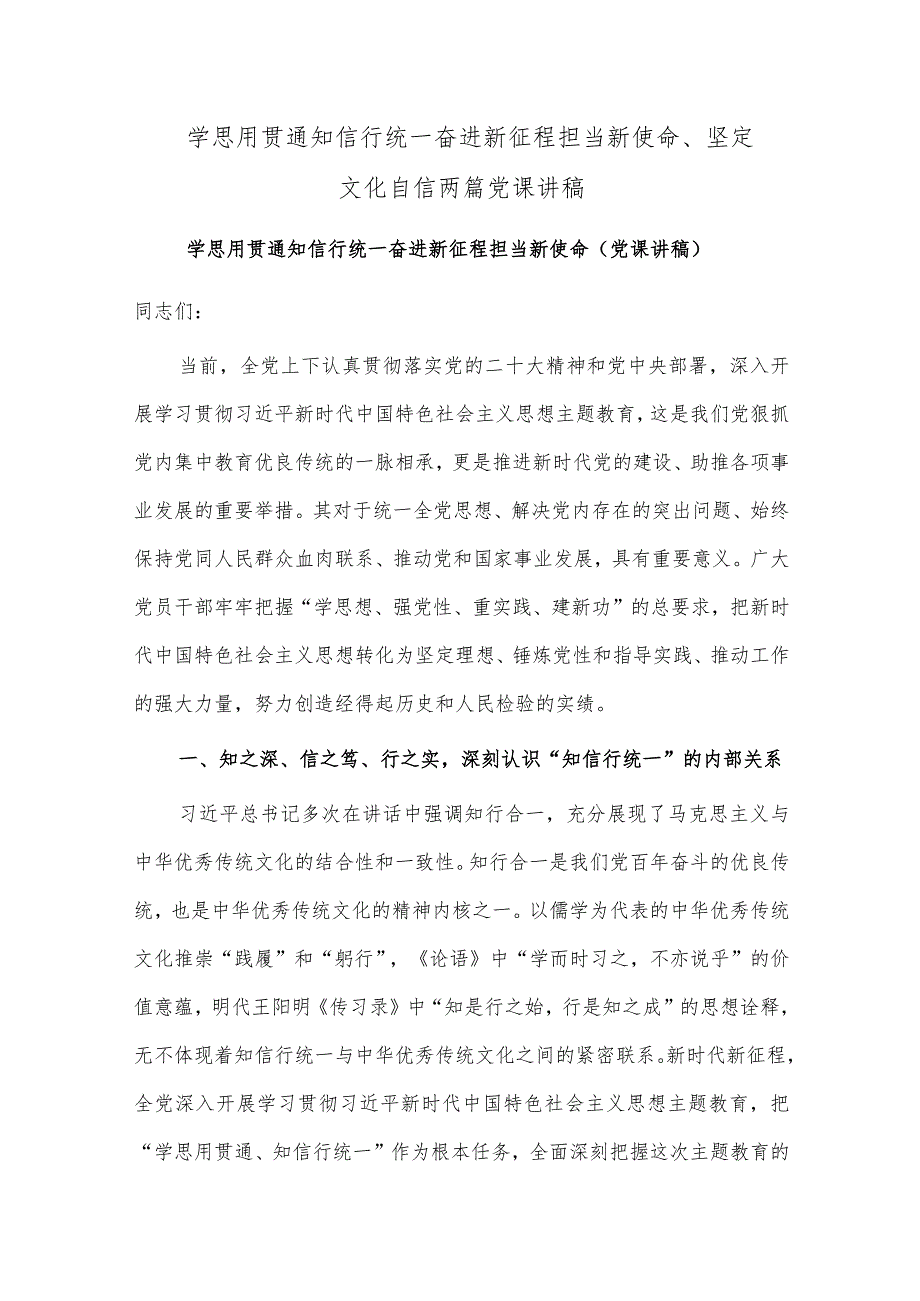 学思用贯通知信行统一奋进新征程担当新使命、坚定
文化自信两篇党课讲稿
学思用贯通知信行统一奋进新征程担当新使命（党课讲稿）
同志们：
当前，全党上下认真贯彻落实党的二十大精神和党中央部署，深入开
展学习贯彻习近平新时代中国特色社会主义思想主题教育，这是我们党狠抓
党内集中教育优良传统的一脉相承，更是推进新时代党的建设、助推各项事
业发展的重要举措。其对于统一全党思想、解决党内存在的突出问题、始终
保持党同人民群众血肉联系、推动党和国家事业发展，具有重要意义。广大
党员干部牢牢把握“学思想、强党性、重实践、建新功”的总要求，把新时
代中国特色社会主义思想转化为坚定理想、锤炼党性和指导实践、推动工作
的强大力量，努力创造经得起历史和人民检验的实绩。
一、知之深、信之笃、行之实，深刻认识“知信行统一”的内部关系
习近平总书记多次在讲话中强调知行合一，充分展现了马克思主义与
中华优秀传统文化的结合性和一致性。知行合一是我们党百年奋斗的优良传
统，也是中华优秀传统文化的精神内核之一。以儒学为代表的中华优秀传统
文化推崇“践履”和“躬行”，《论语》中“学而时习之，不亦说乎”的价
值意蕴，明代王阳明《传习录》中“知是行之始，行是知之成”的思想诠释，
无不体现着知信行统一与中华优秀传统文化之间的紧密联系。新时代新征程，
全党深入开展学习贯彻习近平新时代中国特色社会主义思想主题教育，把
“学思用贯通、知信行统一”作为根本任务，全面深刻把握这次主题教育的